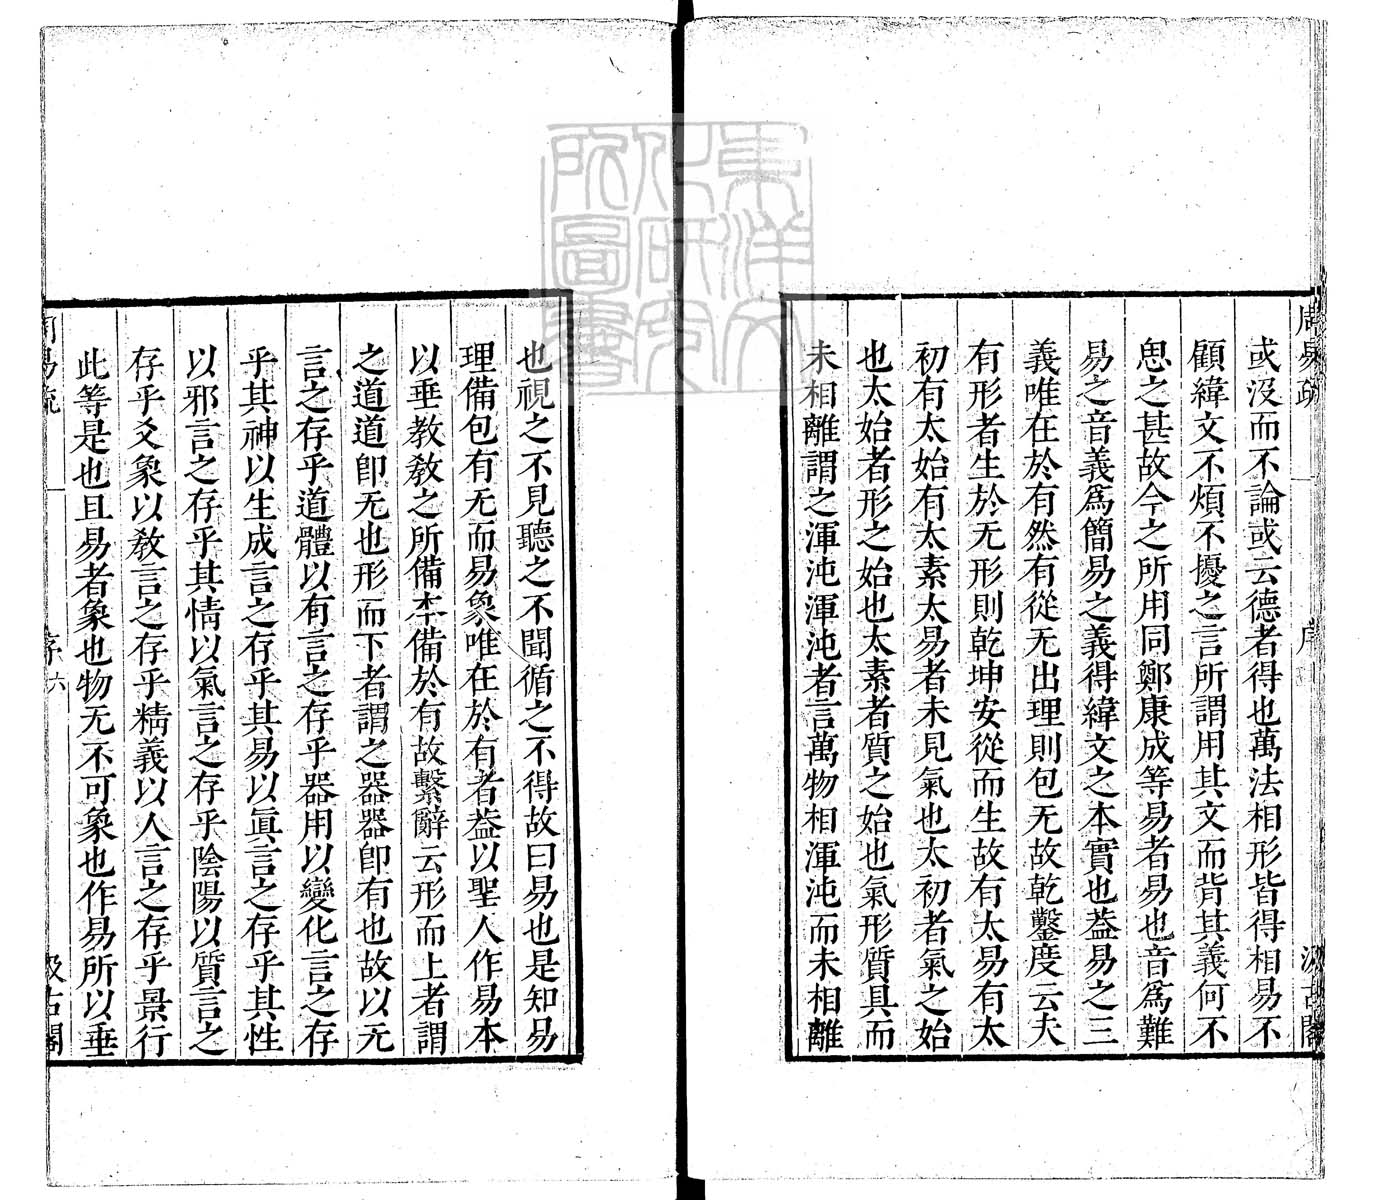 周易疏 序 汲古閣
或沒而不論或云德者得也萬法相形皆得相易不
顧緯文不煩不擾之言所謂用其文而背其義何不
思之甚故今之所用同鄭康成等易者易也音爲難
易之音義爲簡易之義得緯文之本實也葢易之三
義唯在於有然有從无出理則包无故乾鑿度云夫
有形者生於无形則乾坤安從而生故有太易有太
初有太始有太素太易者未見氣也太初者氣之始
也太始者形之始也太素者質之始也氣形質具而
未相離謂之渾沌渾沌者言萬物相渾沌而未相離
也視之不見聽之不聞循之不得故曰易也是知易
理備包有无而易象唯在於有者葢以聖人作易本
以垂教敎之所備本備於有故繫辭云形而上者謂
之道道卽无也形而下者謂之器器卽有也故以无
言之存乎道體以有言之存乎器用以變化言之存
乎其神以生成言之存乎其易以眞言之存乎其性
以邪言之存乎其情以氣言之存乎陰陽以質言之
存乎爻象以敎言之存乎精義以人言之存乎景行
此等是也且易者象也物无不可象也作易所以垂
周易疏 序 六 汲古閣
東洋文
化研究
所圖書